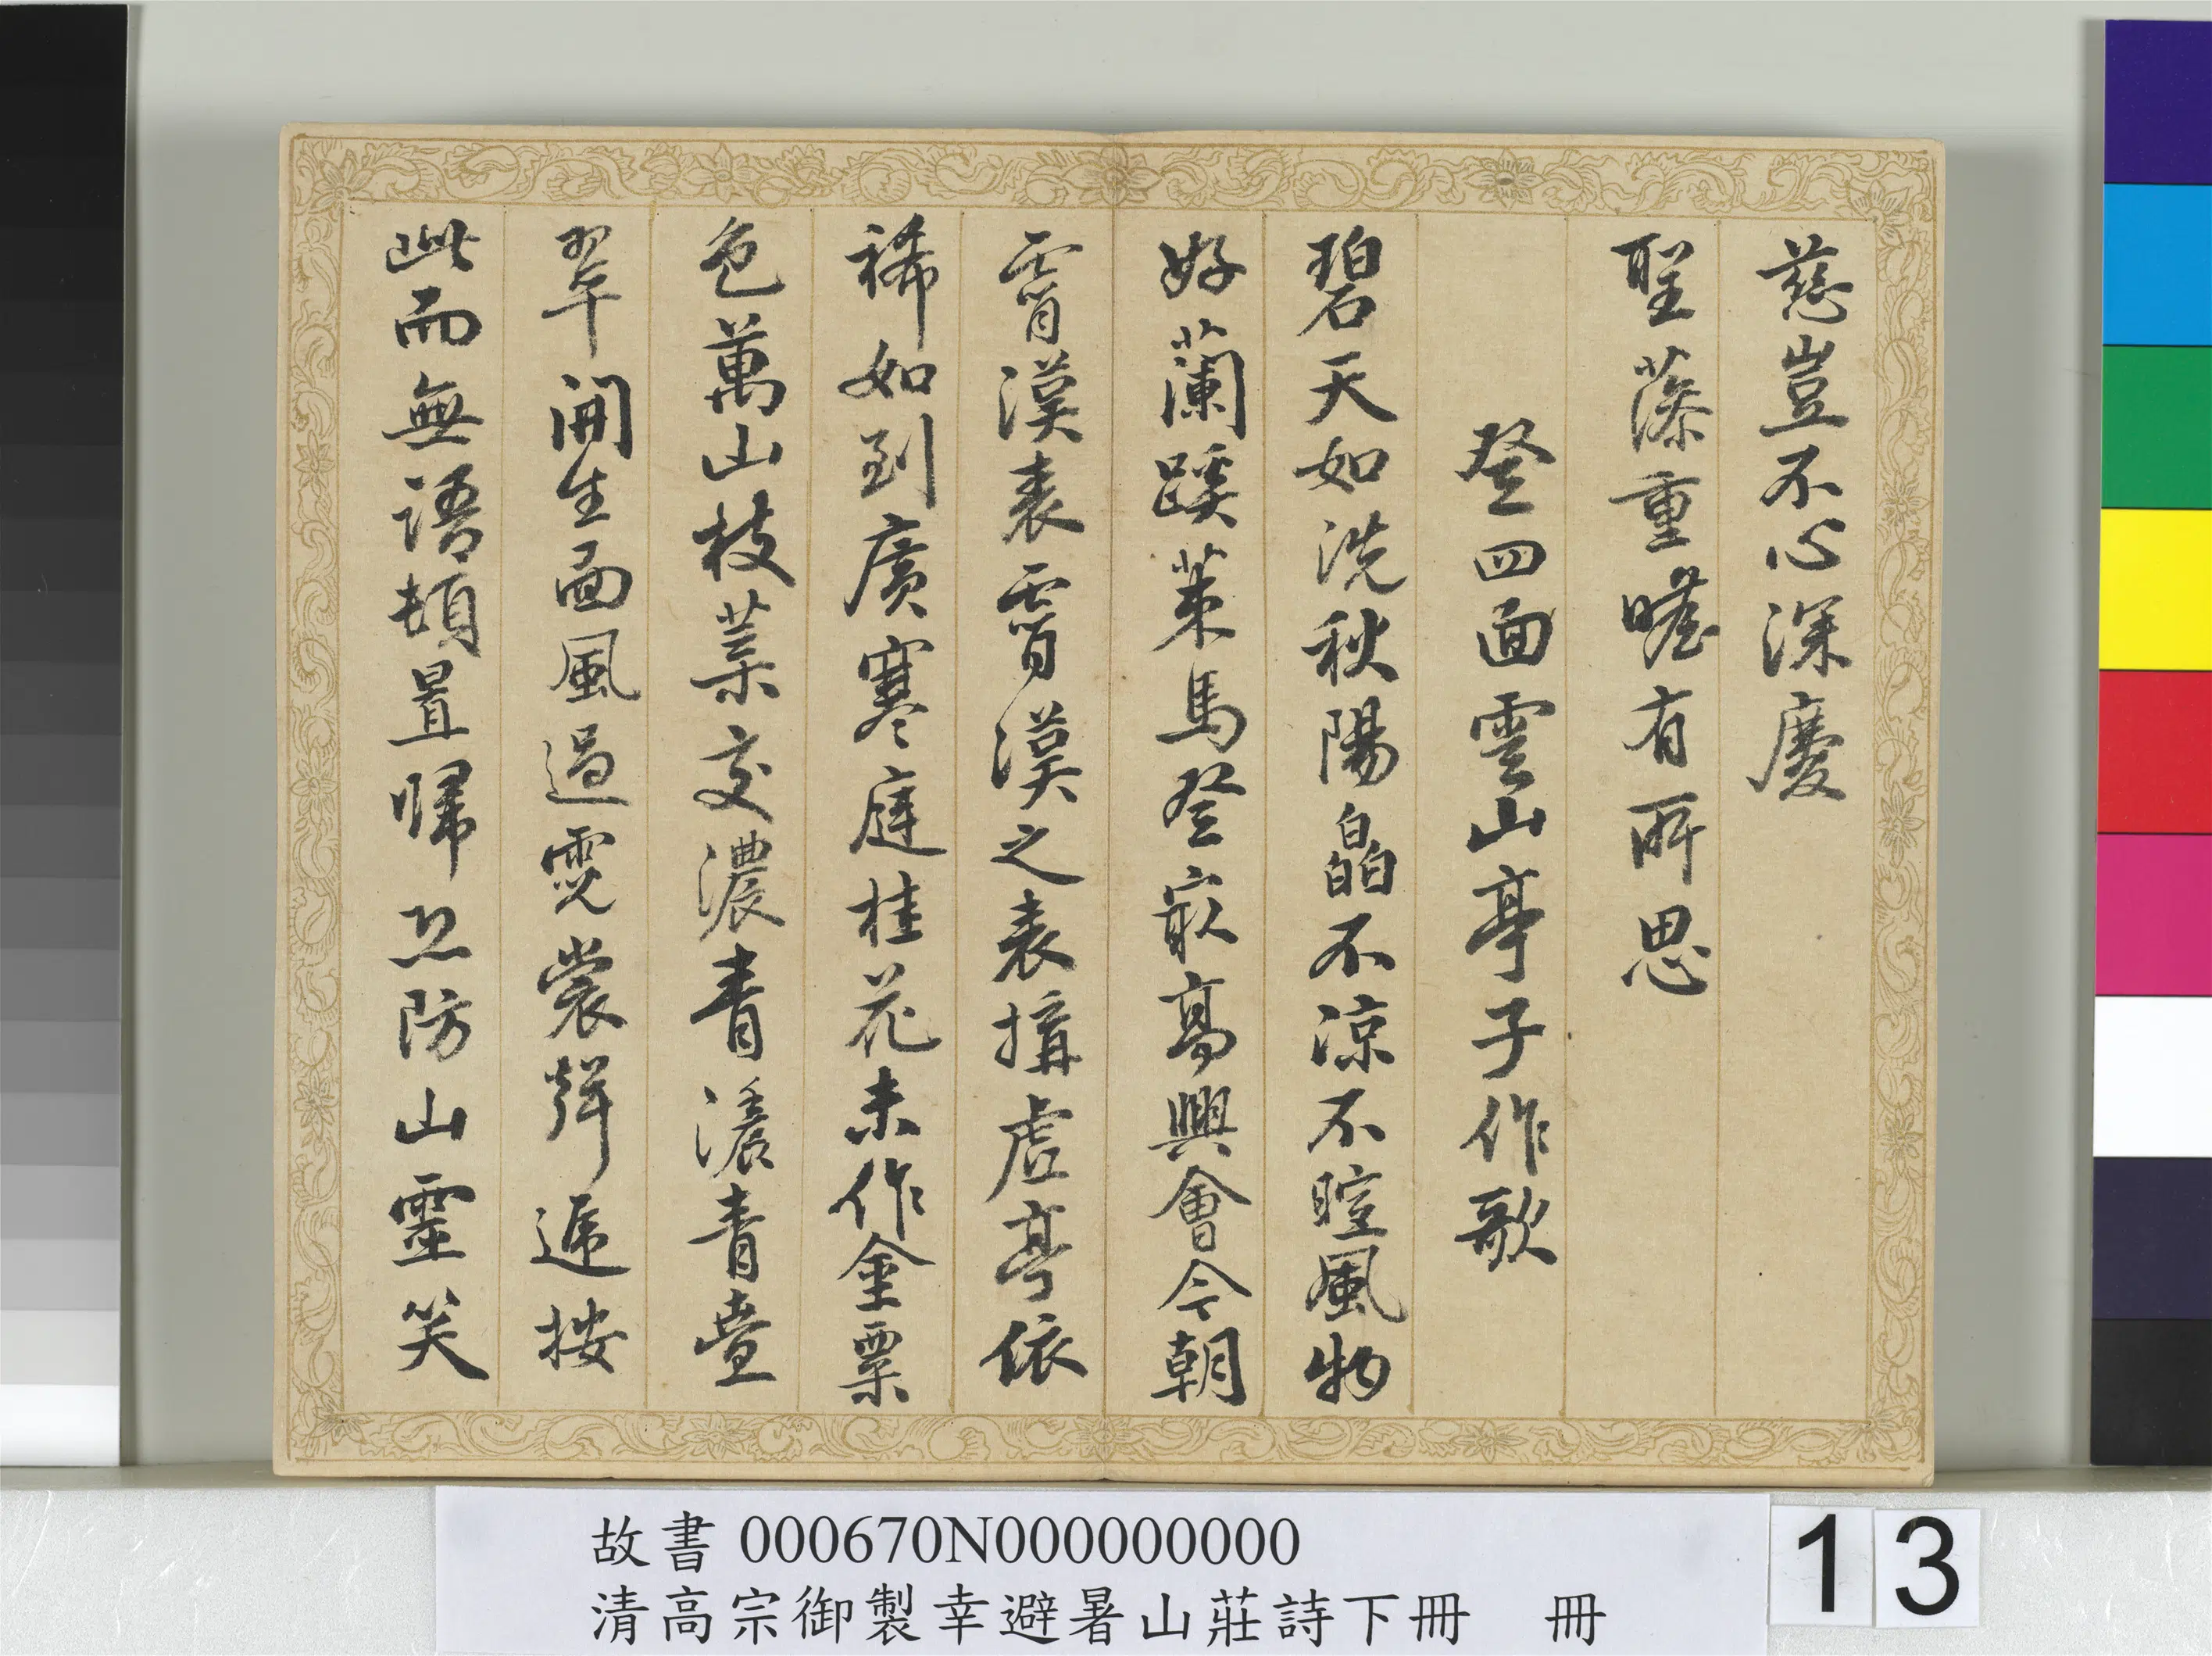 慈豈不心深慶
聖藻重瞻有所思
登四面雲山亭子作歌
碧天如洗秋陽皛不涼不暄風物
好蘭蹊策馬登最高興會今朝
霄漢表霄漢之表構虛亭依
稀如到廣寒庭桂花未作金粟
色萬山枝葉交濃青濃青疊
翠開生面風過霓裳聲遞按
此而無語頓置歸恐防山靈笑
故書 000670N000000000
清高宗御製幸避暑山莊詩下冊 冊
13